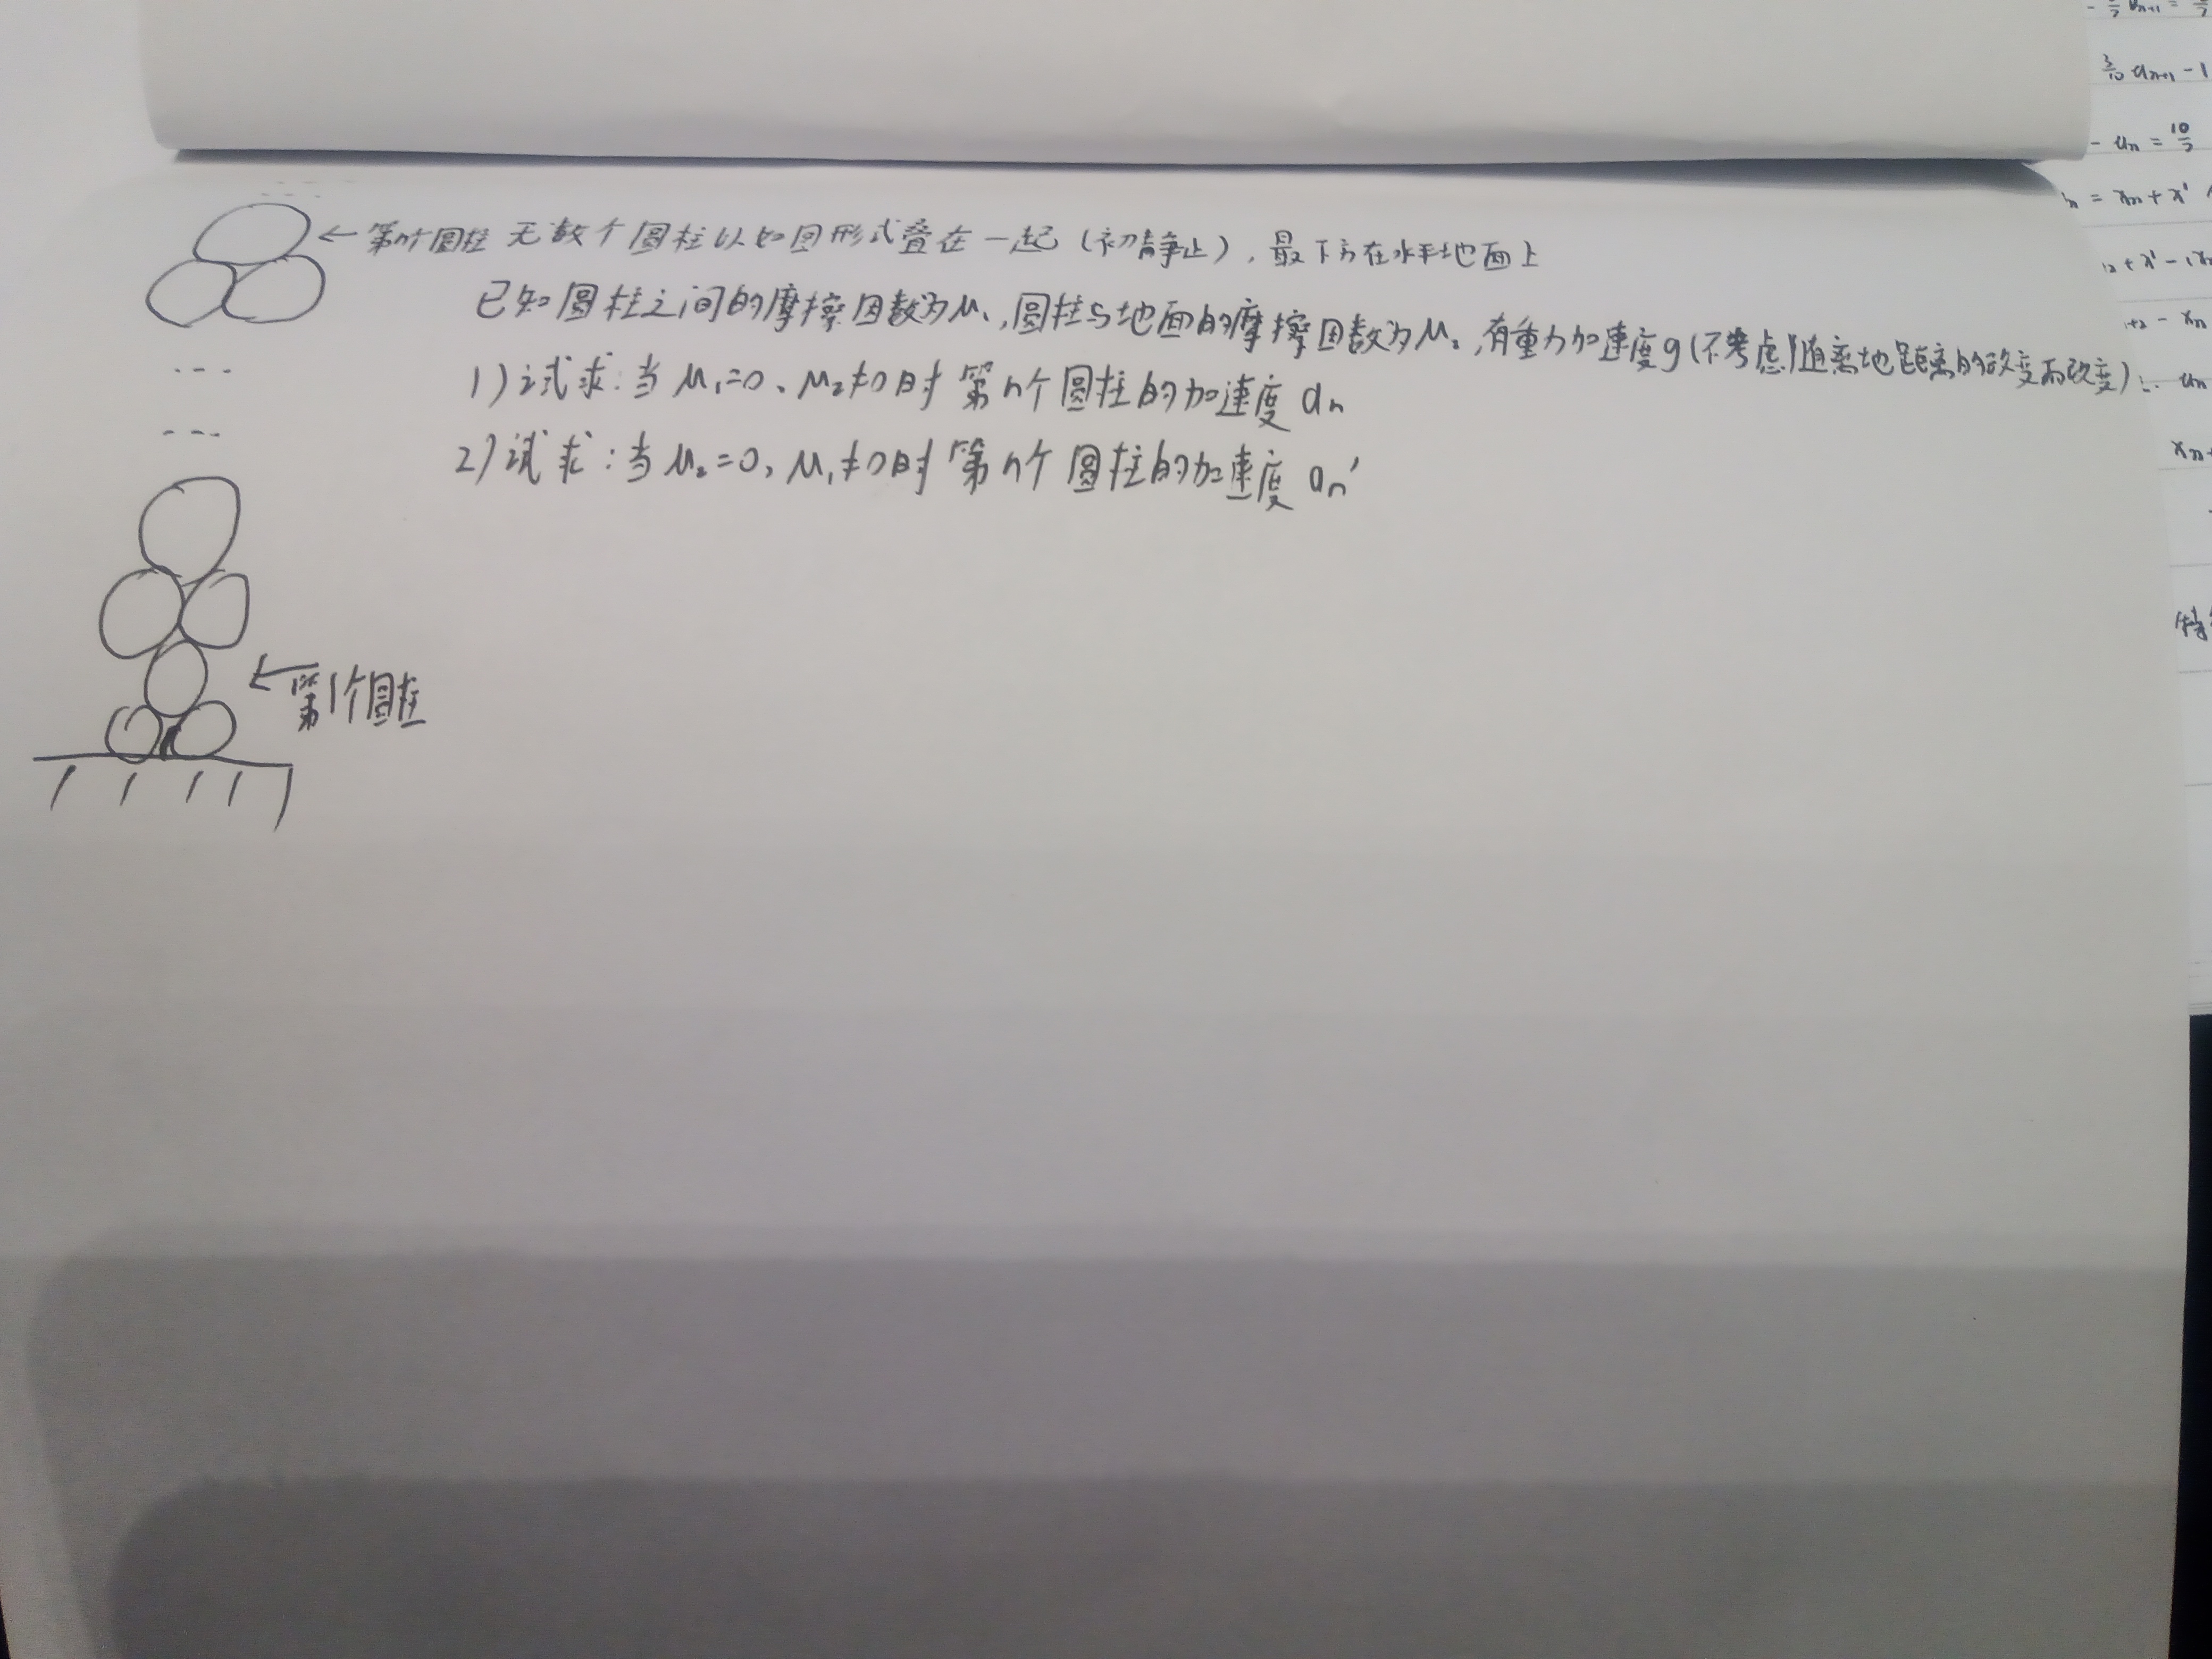 ←第n个圆柱 无数个圆柱以如图形式叠在一起(初静止),最下方在水平地面上
已知圆柱之间的摩擦因数为μ₁,圆柱与地面的摩擦因数为μ₂,有重力加速度g(不考虑g随离地距离的改变而改变)
1)试求:当μ₁=0、μ₂≠0时 第n个圆柱的加速度aₙ
2)试求:当μ₂=0,μ₁≠0时 第n个圆柱的加速度aₙ'
←第1个圆柱
3/10 aₙ₊₁ - 1
- aₙ = 10/7
= xₙ + x'
aₙ